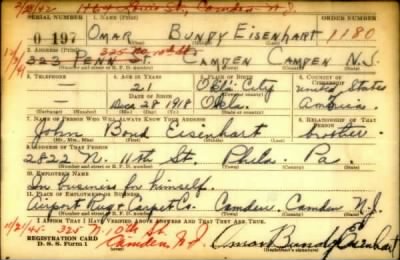 1164 Lewis St., Camden N.J.
SERIAL NUMBER 1. NAME (Print) ORDER NUMBER
0 197 OMAR BUNDY EISENHART 1180
(First) (Middle) (Last)
2. ADDRESS (Print) 325 No 10th St
323 PENN ST. CAMDEN CAMDEN N.J.
3. TELEPHONE 4. AGE IN YEARS 5. PLACE OF BIRTH 6. COUNTRY OF CITIZENSHIP
— 21 Okl. City United States
DATE OF BIRTH
— Dec 28 1918 Okla. America
7. NAME OF PERSON WHO WILL ALWAYS KNOW YOUR ADDRESS 8. RELATIONSHIP OF THAT PERSON
John Bond Eisenhart brother
(Mr., Mrs., Miss) (First) (Middle) (Last)
9. ADDRESS OF THAT PERSON
2822 N. 11th St. Phila. Pa.
10. EMPLOYER'S NAME
In business for himself.
11. PLACE OF EMPLOYMENT OR BUSINESS
Airport Rug & Carpet Co. Camden. Camden N.J.
I AFFIRM THAT I HAVE VERIFIED ABOVE ANSWERS AND THAT THEY ARE TRUE.
325 N. 10th St.
REGISTRATION CARD
D. S. S. Form 1 Camden N.J. Omar Bundy Eisenhart